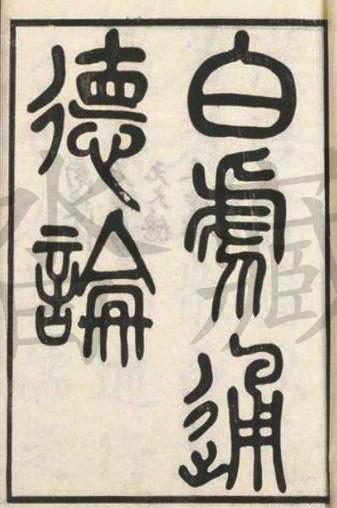 白虎通
德論